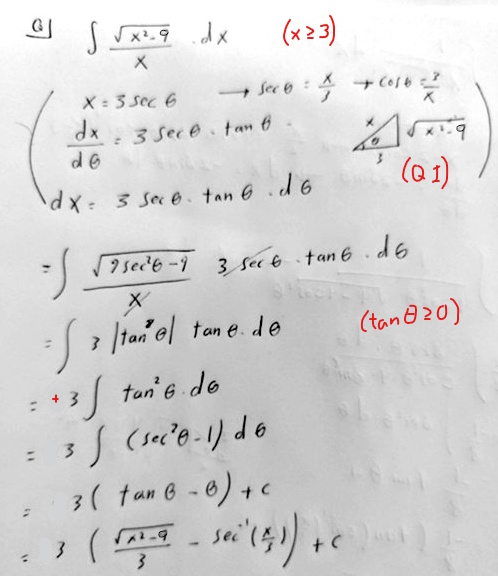 Q1 ∫ √(x²-9) / x . dx (x ≥ 3)
x = 3 sec θ → sec θ = x/3 → cos θ = 3/x
dx/dθ = 3 sec θ . tan θ . x θ 3 √(x²-9)
(Q I)
dx = 3 sec θ . tan θ . dθ
= ∫ √(9sec²θ-9) / x 3 sec θ . tan θ . dθ
= ∫ 3 |tan θ| tan θ . dθ (tan θ ≥ 0)
= + 3 ∫ tan² θ . dθ
= 3 ∫ (sec²θ - 1) dθ
= 3 ( tan θ - θ) + c
= 3 ( √(x²-9) / 3 - sec⁻¹(x/3) ) + c